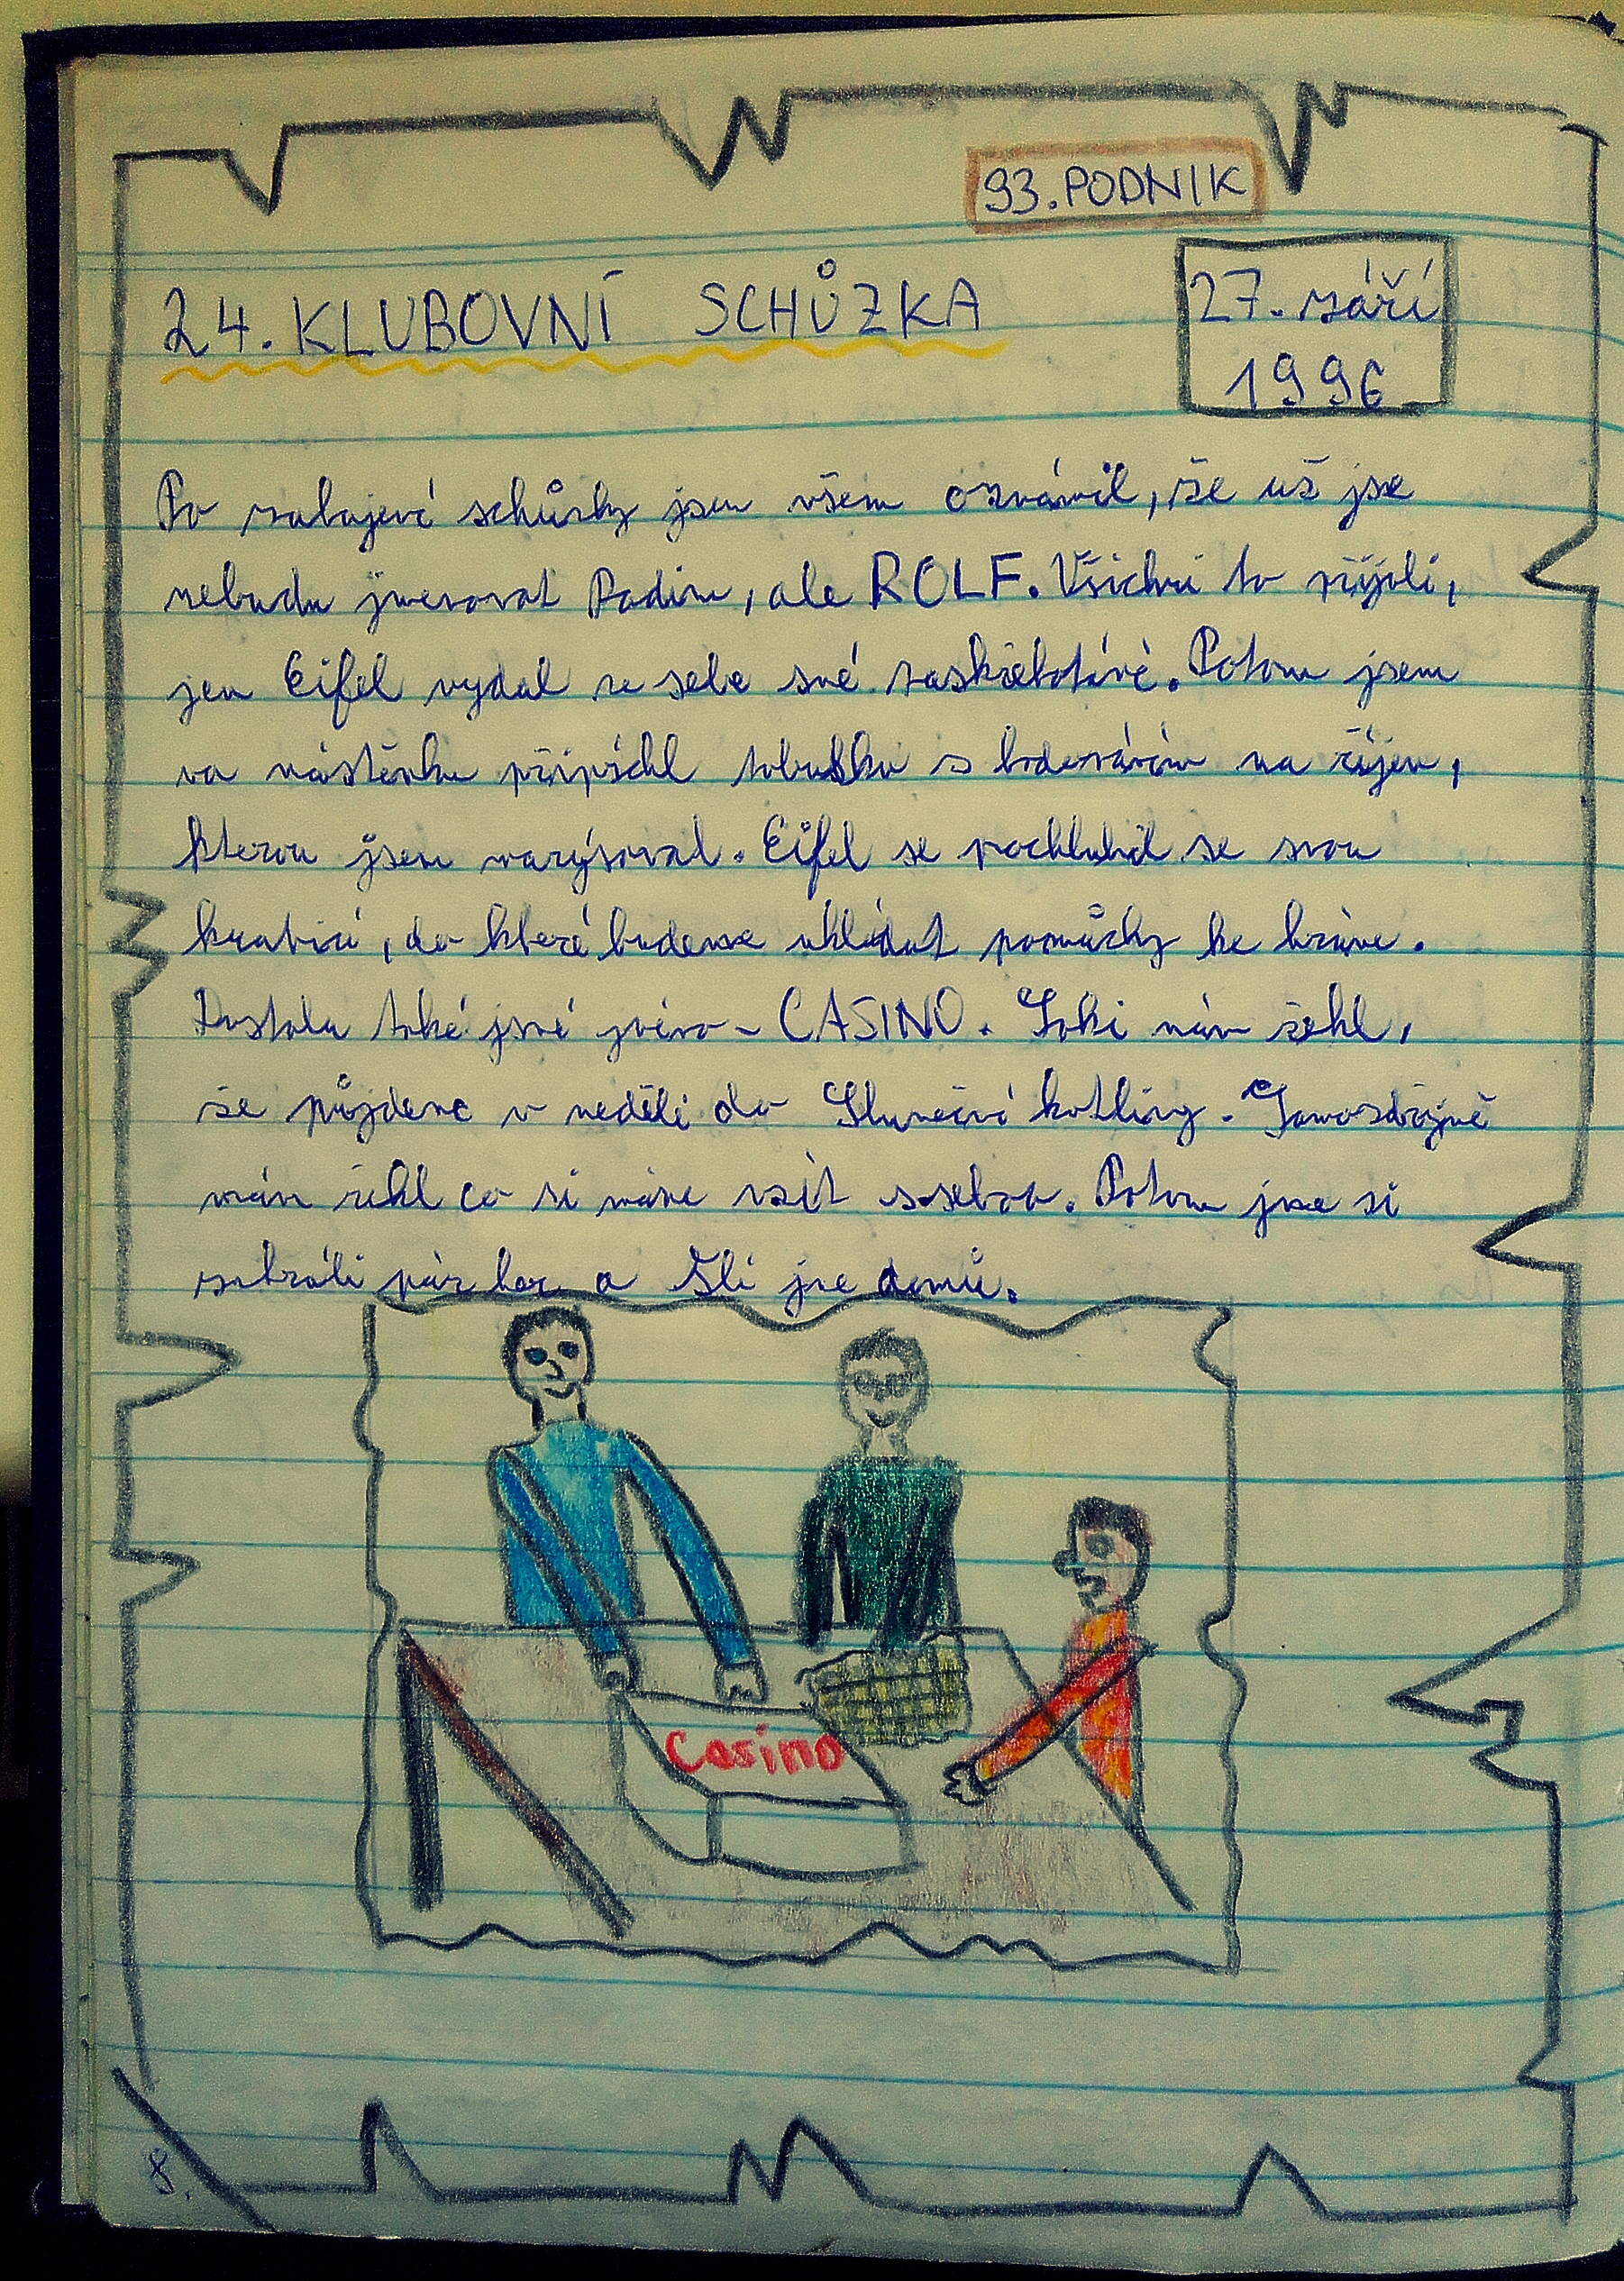 93. PODNIK
24. KLUBOVNÍ SCHŮZKA
27. září
1996
Po zahájení schůzky jsem všem oznámil, že už jse
nebudu jmenovat Radim, ale ROLF. Všichni to přijali,
jen Eifel vydal ze sebe své. Potom jsem
na nástěnku připíchl tabulku s bodováním na říjen,
kterou jsem narýsoval. Eifel se pochlubil se svou
krabicí, do které budeme ukládat pomůcky ke hráme.
Dostala také jsvé jméno - CASINO. nám řekl,
že půjdeme v neděli do Sluneční kotliny. Samozdřejmě
nám řekl co si máme vzít ssebou. Potom jsme si
zahráli pár her a šli jsme domů.
Casino
8.